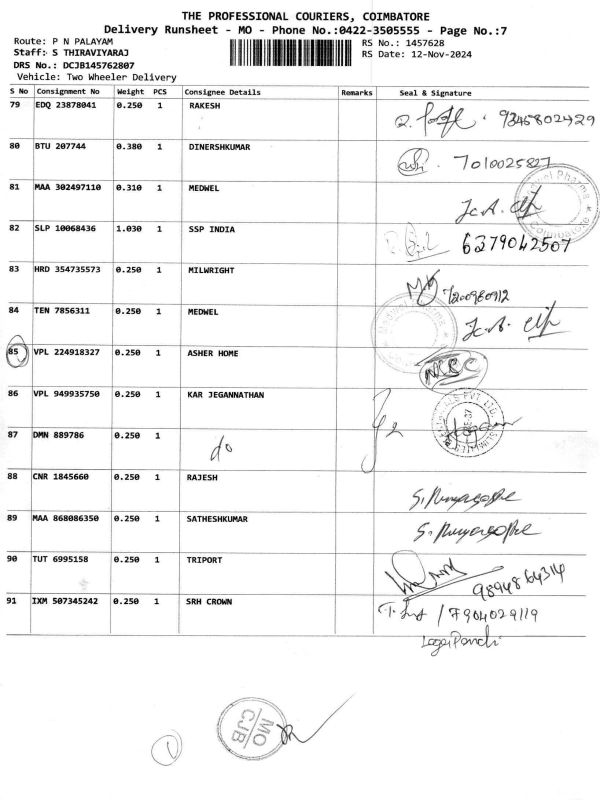 THE PROFESSIONAL COURIERS, COIMBATORE
Delivery Runsheet - MO - Phone No.:0422-3505555 - Page No.:7
Route: P N PALAYAM
RS No.: 1457628
Staff: S THIRAVIYARAJ
RS Date: 12-Nov-2024
DRS No.: DCJB145762807
Vehicle: Two Wheeler Delivery
S No Consignment No Weight PCS Consignee Details Remarks Seal & Signature
79 EDQ 23878041 0.250 1 RAKESH 9345802429
80 BTU 207744 0.380 1 DINERSHKUMAR 7010025827
81 MAA 302497110 0.310 1 MEDWEL
82 SLP 10068436 1.030 1 SSP INDIA 6379042507
83 HRD 354735573 0.250 1 MILWRIGHT
84 TEN 7856311 0.250 1 MEDWEL
85 VPL 224918327 0.250 1 ASHER HOME
86 VPL 949935750 0.250 1 KAR JEGANNATHAN
87 DMN 889786 0.250 1 do
88 CNR 1845660 0.250 1 RAJESH
89 MAA 868086350 0.250 1 SATHESHKUMAR
90 TUT 6995158 0.250 1 TRIPORT 9894864314
91 IXM 507345242 0.250 1 SRH CROWN 7904029119
MO
CJB
1